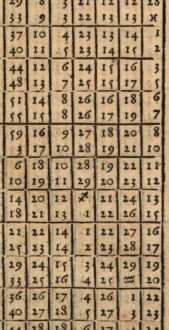 33 9 3 22 13 13 ♓
37 10 4 23 13 14 1
40 11 5 23 14 15 2
44 12 6 24 15 16 3
48 13 7 25 15 17 5
51 14 8 26 16 18 6
55 15 8 26 17 19 7
59 16 9 27 18 20 8
3 17 10 28 19 21 10
6 18 10 28 19 22 11
10 19 11 29 20 23 12
14 20 12 ♐ 21 24 13
18 21 13 1 22 26 15
21 22 14 1 22 27 16
25 23 14 2 23 28 17
29 24 15 3 24 29 19
33 25 16 4 25 ♒ 20
36 26 17 4 26 1 22
40 27 18 27 3 23